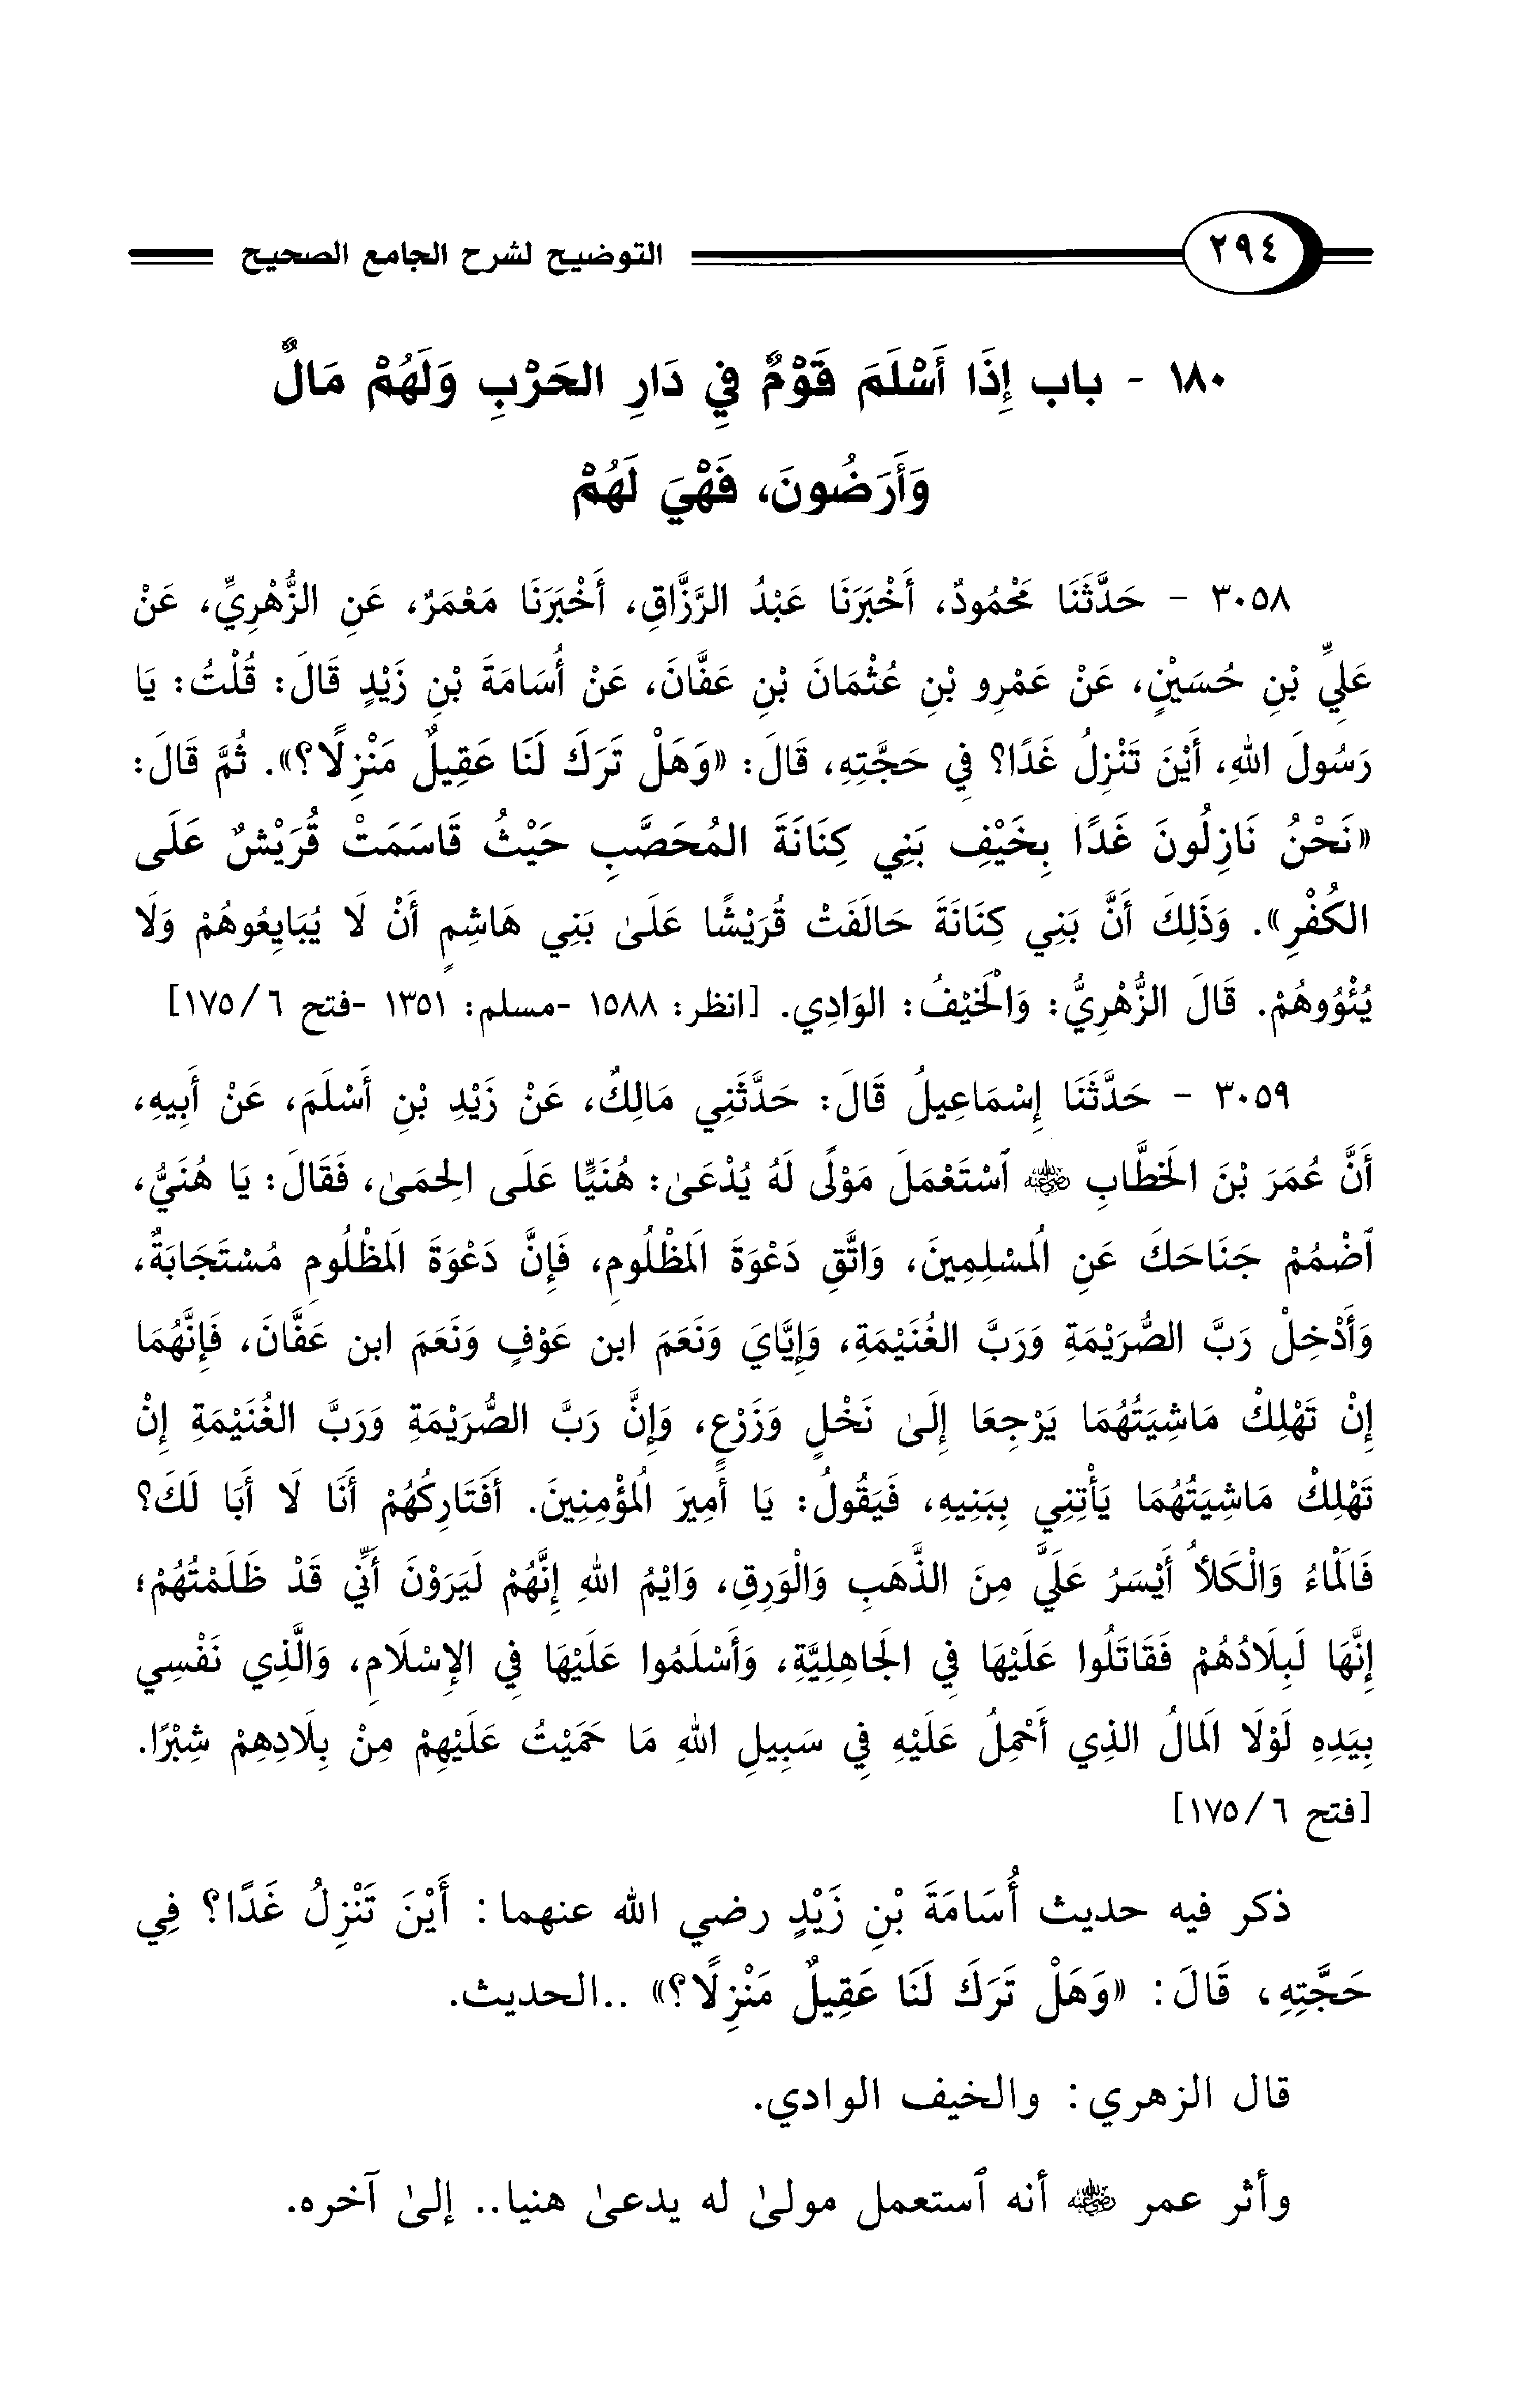 ٢٩٤ التوضيح لشرح الجامع الصحيح
١٨٠ - باب إِذَا أَسْلَمَ قَوْمٌ فِي دَارِ الحَرْبِ وَلَهُمْ مَالٌ
وَأَرَضُونَ، فَهْيَ لَهُمْ
٣٠٥٨ - حَدَّثَنَا مَحْمُودٌ، أَخْبَرَنَا عَبْدُ الرَّزَّاقِ، أَخْبَرَنَا مَعْمَرٌ، عَنِ الزُّهْرِيِّ، عَنْ
عَلِيِّ بْنِ حُسَيْنٍ، عَنْ عَمْرِو بْنِ عُثْمَانَ بْنِ عَفَّانَ، عَنْ أُسَامَةَ بْنِ زَيْدٍ قَالَ: قُلْتُ: يَا
رَسُولَ اللهِ، أَيْنَ تَنْزِلُ غَدًا؟ فِي حَجَّتِهِ، قَالَ: «وَهَلْ تَرَكَ لَنَا عَقِيلٌ مَنْزِلًا؟». ثُمَّ قَالَ:
«نَحْنُ نَازِلُونَ غَدًا بِخَيْفِ بَنِي كِنَانَةَ المُحَصَّبِ حَيْثُ قَاسَمَتْ قُرَيْشٌ عَلَى
الكُفْرِ». وَذَلِكَ أَنَّ بَنِي كِنَانَةَ حَالَفَتْ قُرَيْشًا عَلَىٰ بَنِي هَاشِمٍ أَنْ لَا يُبَايِعُوهُمْ وَلَا
يُئْوُوهُمْ. قَالَ الزُّهْرِيُّ: وَالْخَيْفُ: الوَادِي. [انظر: ١٥٨٨ -مسلم: ١٣٥١ -فتح ٦/ ١٧٥]
٣٠٥٩ - حَدَّثَنَا إِسْمَاعِيلُ قَالَ: حَدَّثَنِي مَالِكٌ، عَنْ زَيْدِ بْنِ أَسْلَمَ، عَنْ أَبِيهِ،
أَنَّ عُمَرَ بْنَ الَخطَّابِ رضي الله عنه ٱسْتَعْمَلَ مَوْلًى لَهُ يُدْعَىٰ: هُنَيًّا عَلَى الِحمَىٰ، فَقَالَ: يَا هُنَيُّ،
ٱضْمُمْ جَنَاحَكَ عَنِ اُلمسْلِمِينَ، وَاتَّقِ دَعْوَةَ اَلمظْلُومِ، فَإِنَّ دَعْوَةَ اَلمظْلُومِ مُسْتَجَابَةٌ،
وَأَدْخِلْ رَبَّ الصُّرَيْمَةِ وَرَبَّ الغُنَيْمَةِ، وَإِيَّايَ وَنَعَمَ ابن عَوْفٍ وَنَعَمَ ابن عَفَّانَ، فَإِنَّهُمَا
إِنْ تَهْلِكْ مَاشِيَتُهُمَا يَرْجِعَا إِلَىٰ نَخْلٍ وَزَرْعٍ، وَإِنَّ رَبَّ الصُّرَيْمَةِ وَرَبَّ الغُنَيْمَةِ إِنْ
تَهْلِكْ مَاشِيَتُهُمَا يَأْتِنِي بِبَنِيهِ، فَيَقُولُ: يَا أَمِيرَ اُلمؤْمِنِينَ. أَفَتَارِكُهُمْ أَنَا لَا أَبَا لَكَ؟
فَاَلماءُ وَالْكَلأُ أَيْسَرُ عَلَيَّ مِنَ الذَّهَبِ وَالْوَرِقِ، وَايْمُ اللهِ إِنَّهُمْ لَيَرَوْنَ أَنِّي قَدْ ظَلَمْتُهُمْ؛
إِنَّهَا لَبِلَادُهُمْ فَقَاتَلُوا عَلَيْهَا فِي الَجاهِلِيَّةِ، وَأَسْلَمُوا عَلَيْهَا فِي الإِسْلَامِ، وَالَّذِي نَفْسِي
بِيَدِهِ لَوْلَا اَلمالُ الذِي أَحْمِلُ عَلَيْهِ فِي سَبِيلِ اللهِ مَا حَمَيْتُ عَلَيْهِمْ مِنْ بِلَادِهِمْ شِبْرًا.
[فتح ٦/ ١٧٥]
ذكر فيه حديث أُسَامَةَ بْنِ زَيْدٍ رضي الله عنهما: أَيْنَ تَنْزِلُ غَدًا؟ فِي
حَجَّتِهِ، قَالَ: «وَهَلْ تَرَكَ لَنَا عَقِيلٌ مَنْزِلًا؟» ..الحديث.
قال الزهري: والخيف الوادي.
وأثر عمر رضي الله عنه أنه ٱستعمل مولىٰ له يدعىٰ هنيا.. إلىٰ آخره.